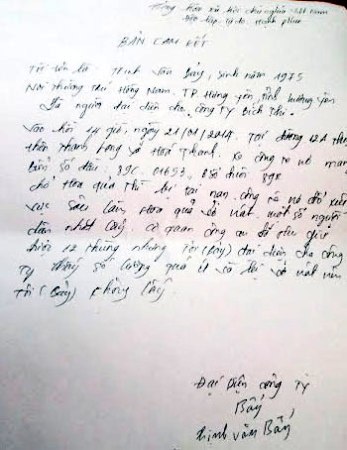 Cộng hòa xã hội chủ nghĩa Việt Nam
Độc lập, tự do, hạnh phúc
BẢN CAM KẾT
Tôi tên là: Trịnh Văn Bảy, sinh năm 1975
Nơi thường trú Hồng Nam. TP. Hưng yên, tỉnh hưng yên
Là người đại diện cho công TY Bích Thị.
Vào hồi 14 giờ, ngày 21/01/2014. Tại đường 12A thuộc
thôn Thanh Lạng xã Hoá Thanh. Xe công ra nơ mang
Biển Số đầu, 89C. 01653, Số đuôi 89R
chở Hoa quả Thì bị tai nạn. công ra nơ đổ xuống
vực Sâu làm Hoa quả dập nát. một số người
dân nhặt lấy. cơ quan công an đã thu giữ
được 12 thùng nhưng Tôi (Bảy) đại diện cho công
TY Thấy số lượng quá ít và bị dập nát nên
Tôi (Bảy) không lấy.
Đại Diện công TY
Bẩy
Trịnh văn Bẩy